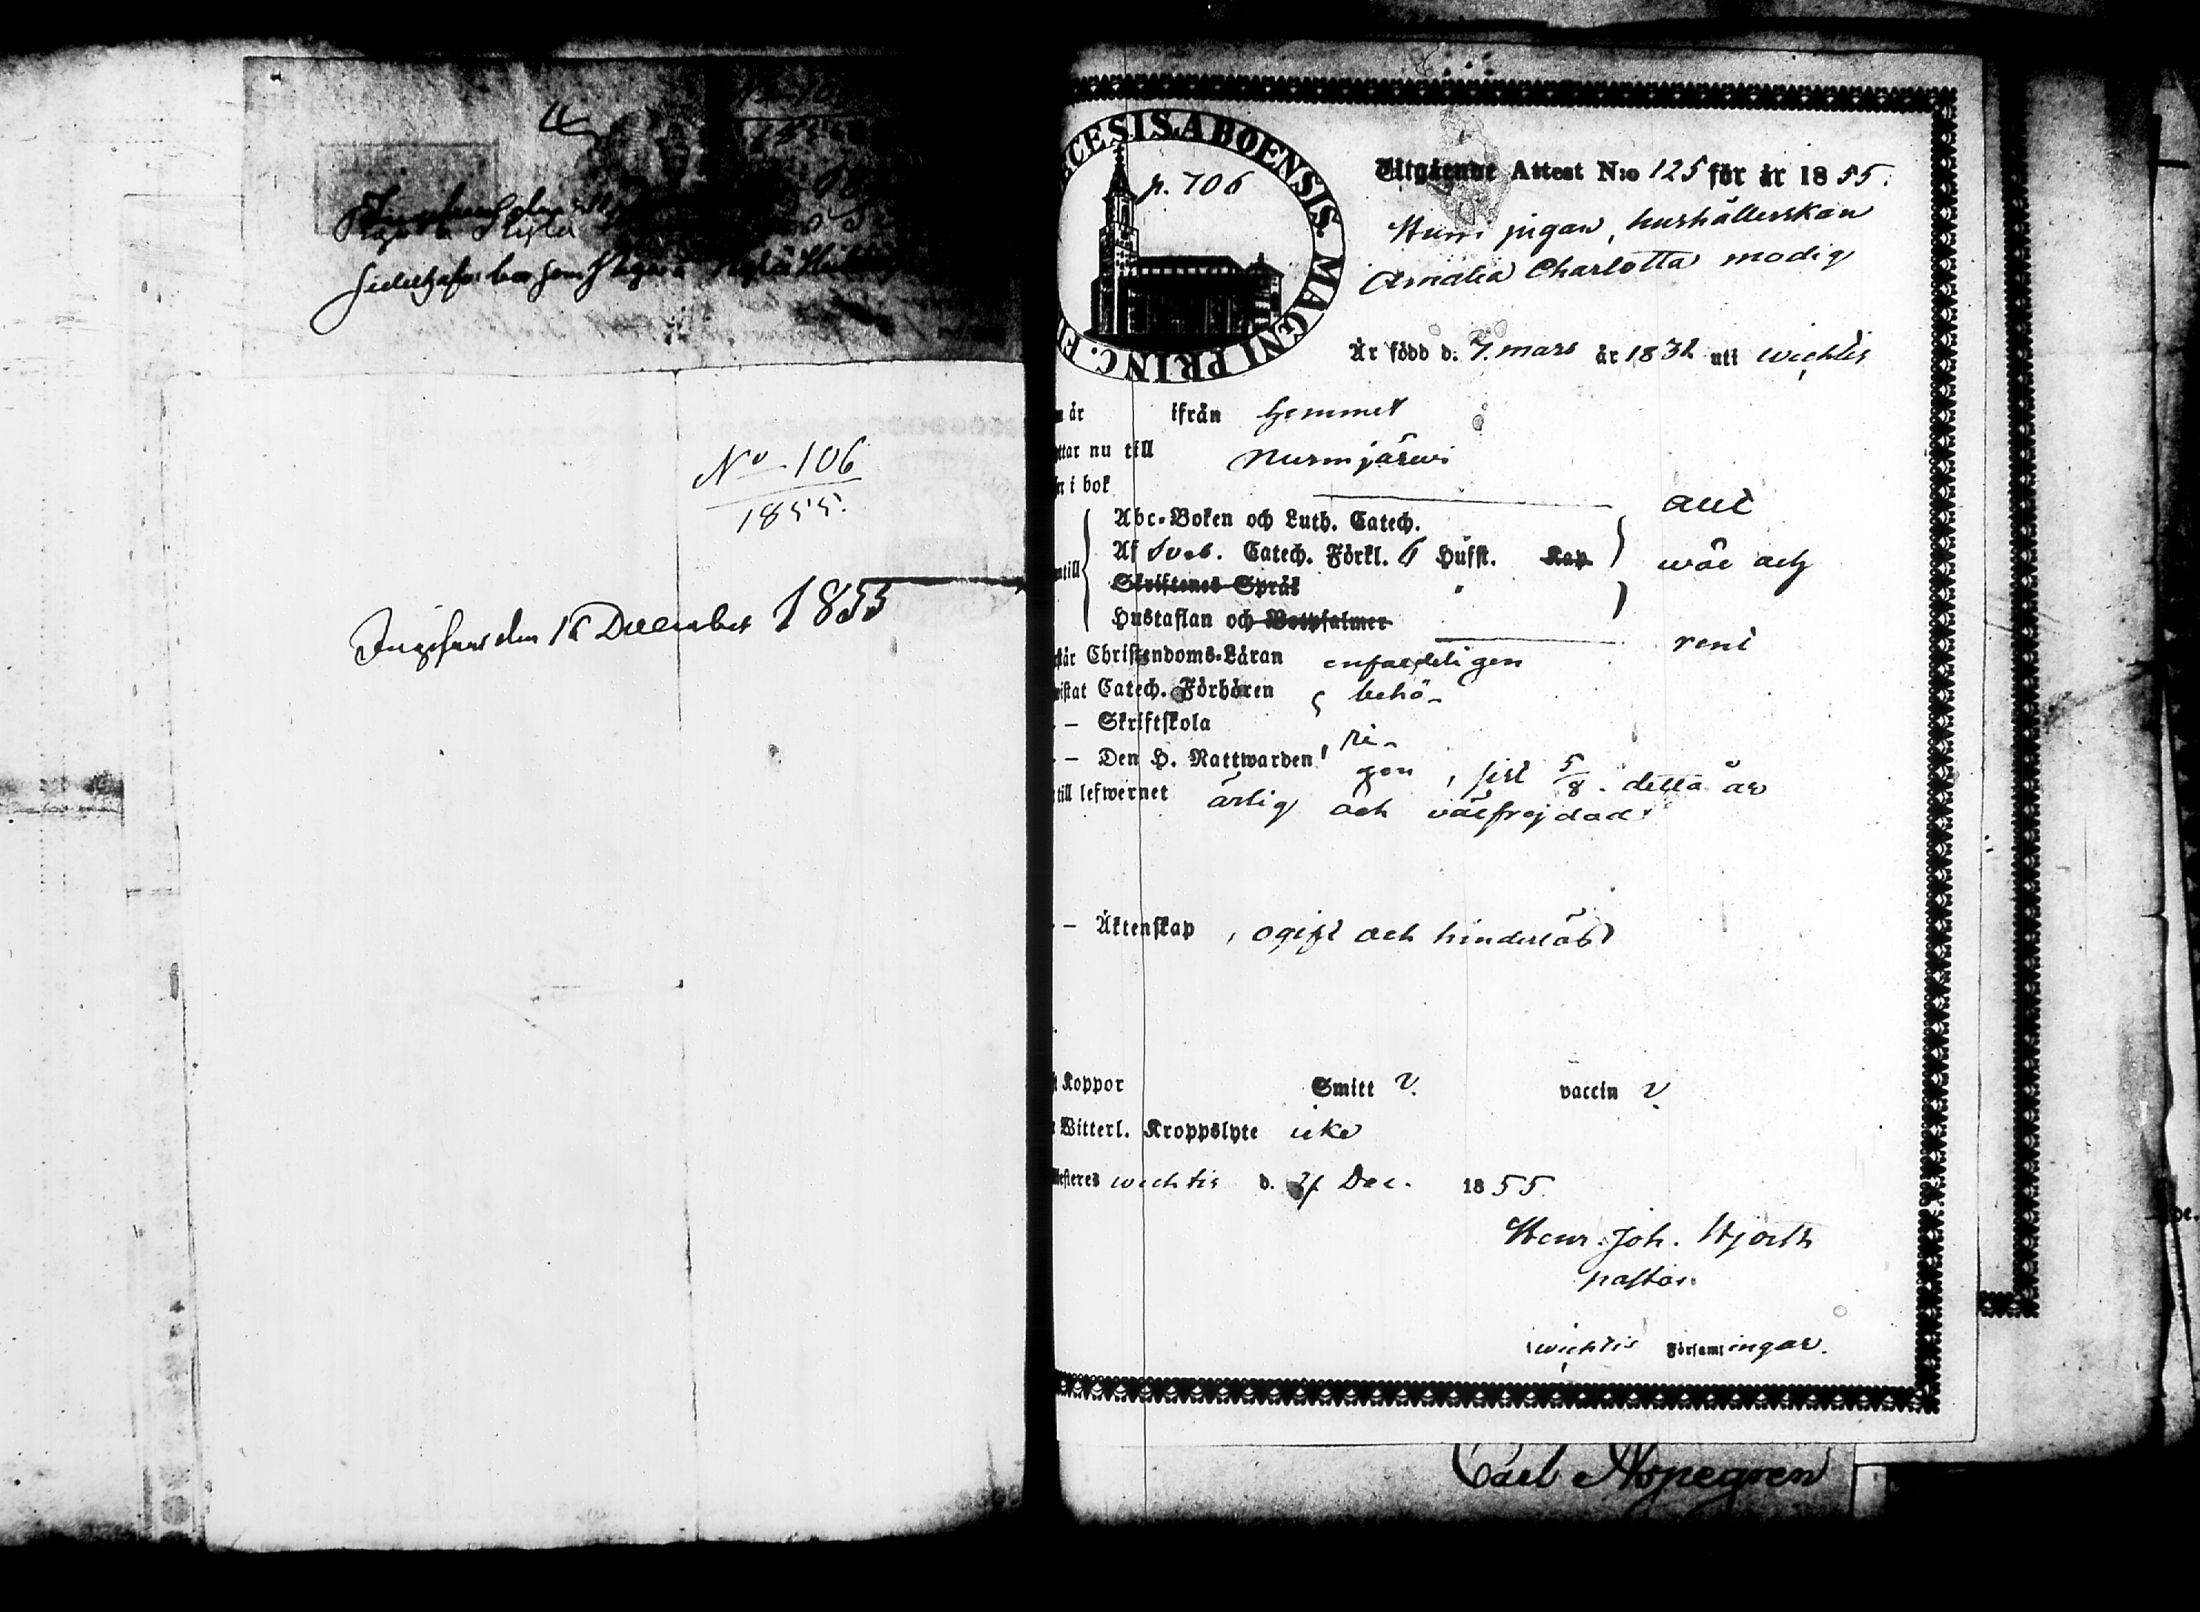 No 106
1855.
Ingifvet den 16 December 1855
CESIS. ABOENSIS. MAGNI PRINC. F
p. 706
Utgående Attest N:o 125 för år 1855.
pigan, hushållerskan
Amalia Charlotta Modig
Är född d. 7. mars år 1832 uti Wichtis
är ifrån hemmet
ttar nu till Nurmjärwi
i bok
Abc-Boken och Luth. Catech.
Af Sveb. Catech. Förkl. 6 Hufst. Kap
Skriftenes Språk
Hustaflan och Botpsalmer
allt
wäl och
rent
står Christendoms-Läran enfaldeligen
wistat Catech. Förhören behö-
— Skriftskola
ri-
— Den H. Nattwarden gen, sist 5/8. detta år
till lefwernet ärlig och välfrejdad
— Äktenskap, ogift och hinderlös
Koppor Smitt v. vaccin v.
Witterl. Kroppslyte icke
esteres Wichtis d. Dec. 1855.
Henr. Joh. Hjorth
pastor.
Wichtis Församlingar.
Carl Aspegren